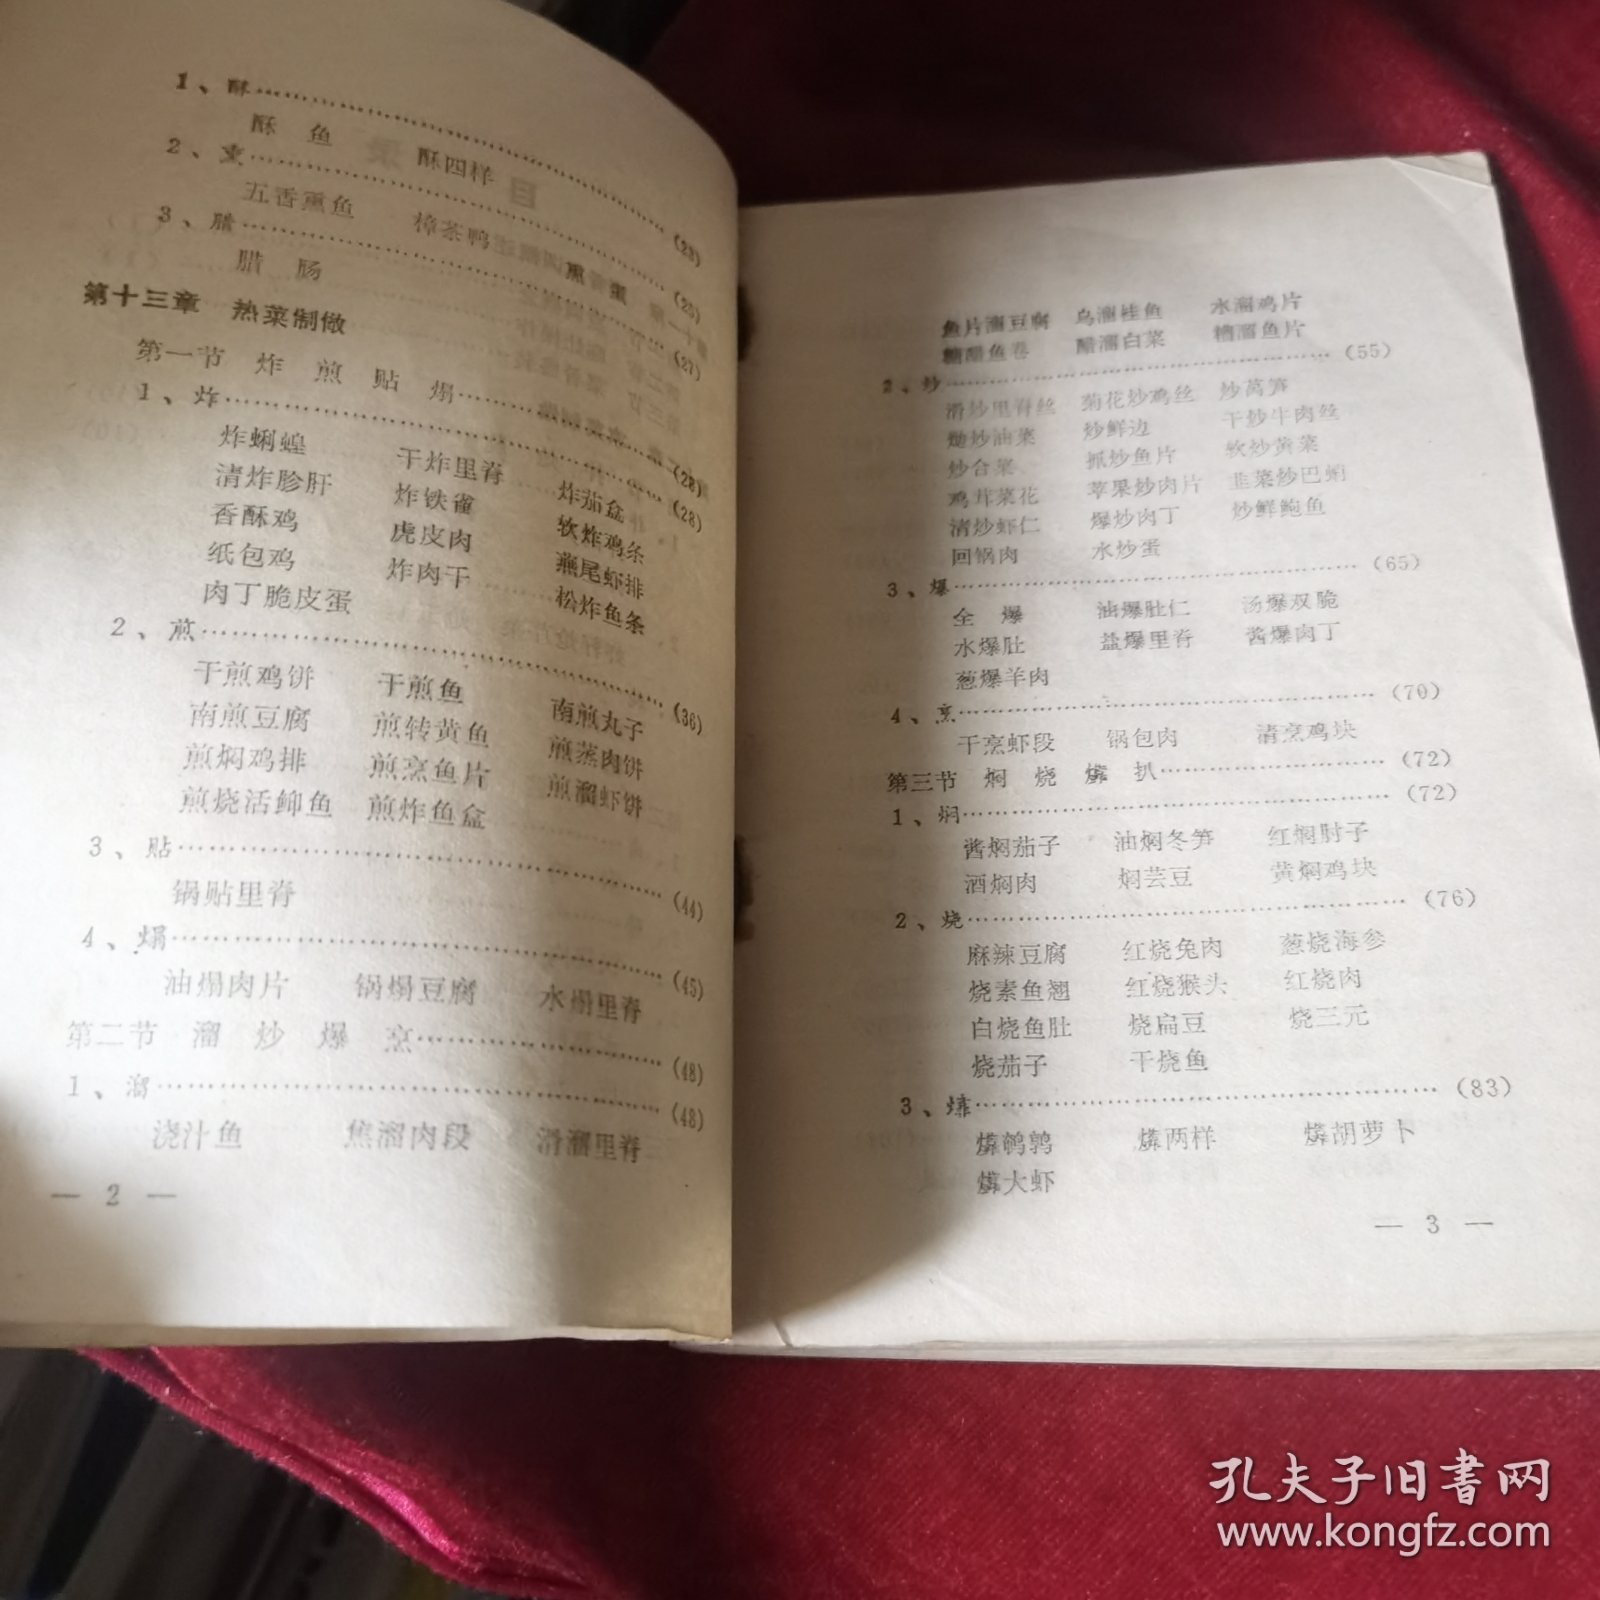 1、酥……(23)
酥 鱼 酥四样
2、熏……(25)
五香熏鱼 樟茶鸭
3、腊……(27)
腊 肠
第十三章 热菜制做
第一节 炸 煎 贴 㷛……(28)
1、炸……(28)
炸蜊蝗 干炸里脊 炸茄盒
清炸胗肝 炸铁雀 软炸鸡条
香酥鸡 虎皮肉 燕尾虾排
纸包鸡 炸肉干 松炸鱼条
肉丁脆皮蛋
2、煎……(36)
干煎鸡饼 干煎鱼 南煎丸子
南煎豆腐 煎转黄鱼 煎蒸肉饼
煎焖鸡排 煎烹鱼片 煎溜虾饼
煎烧活鲫鱼 煎炸鱼盒
3、贴……(44)
锅贴里脊
4、㷛……(45)
油㷛肉片 锅㷛豆腐 水㷛里脊
第二节 溜 炒 爆 烹……(48)
1、溜……(48)
浇汁鱼 焦溜肉段 滑溜里脊
— 2 —
鱼片溜豆腐 乌溜桂鱼 水溜鸡片
糖醋鱼卷 醋溜白菜 糟溜鱼片
2、炒……(55)
滑炒里脊丝 菊花炒鸡丝 炒莴笋
煸炒油菜 炒鲜边 干炒牛肉丝
炒合菜 抓炒鱼片 软炒黄菜
鸡茸菜花 苹果炒肉片 韭菜炒巴蛸
清炒虾仁 爆炒肉丁 炒鲜鲍鱼
回锅肉 水炒蛋
3、爆……(65)
全 爆 油爆肚仁 汤爆双脆
水爆肚 盐爆里脊 酱爆肉丁
葱爆羊肉
4、烹……(70)
干烹虾段 锅包肉 清烹鸡块
第三节 焖 烧 㸆 扒……(72)
1、焖……(72)
酱焖茄子 油焖冬笋 红焖肘子
酒焖肉 焖芸豆 黄焖鸡块
2、烧……(76)
麻辣豆腐 红烧兔肉 葱烧海参
烧素鱼翘 红烧猴头 红烧肉
白烧鱼肚 烧扁豆 烧三元
烧茄子 干烧鱼
3、㸆……(83)
㸆鹌鹑 㸆两样 㸆胡萝卜
㸆大虾
— 3 —
孔夫子旧书网
www.kongfz.com